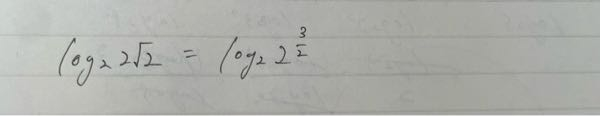 log₂ 2√2 = log₂ 2^(3/2)